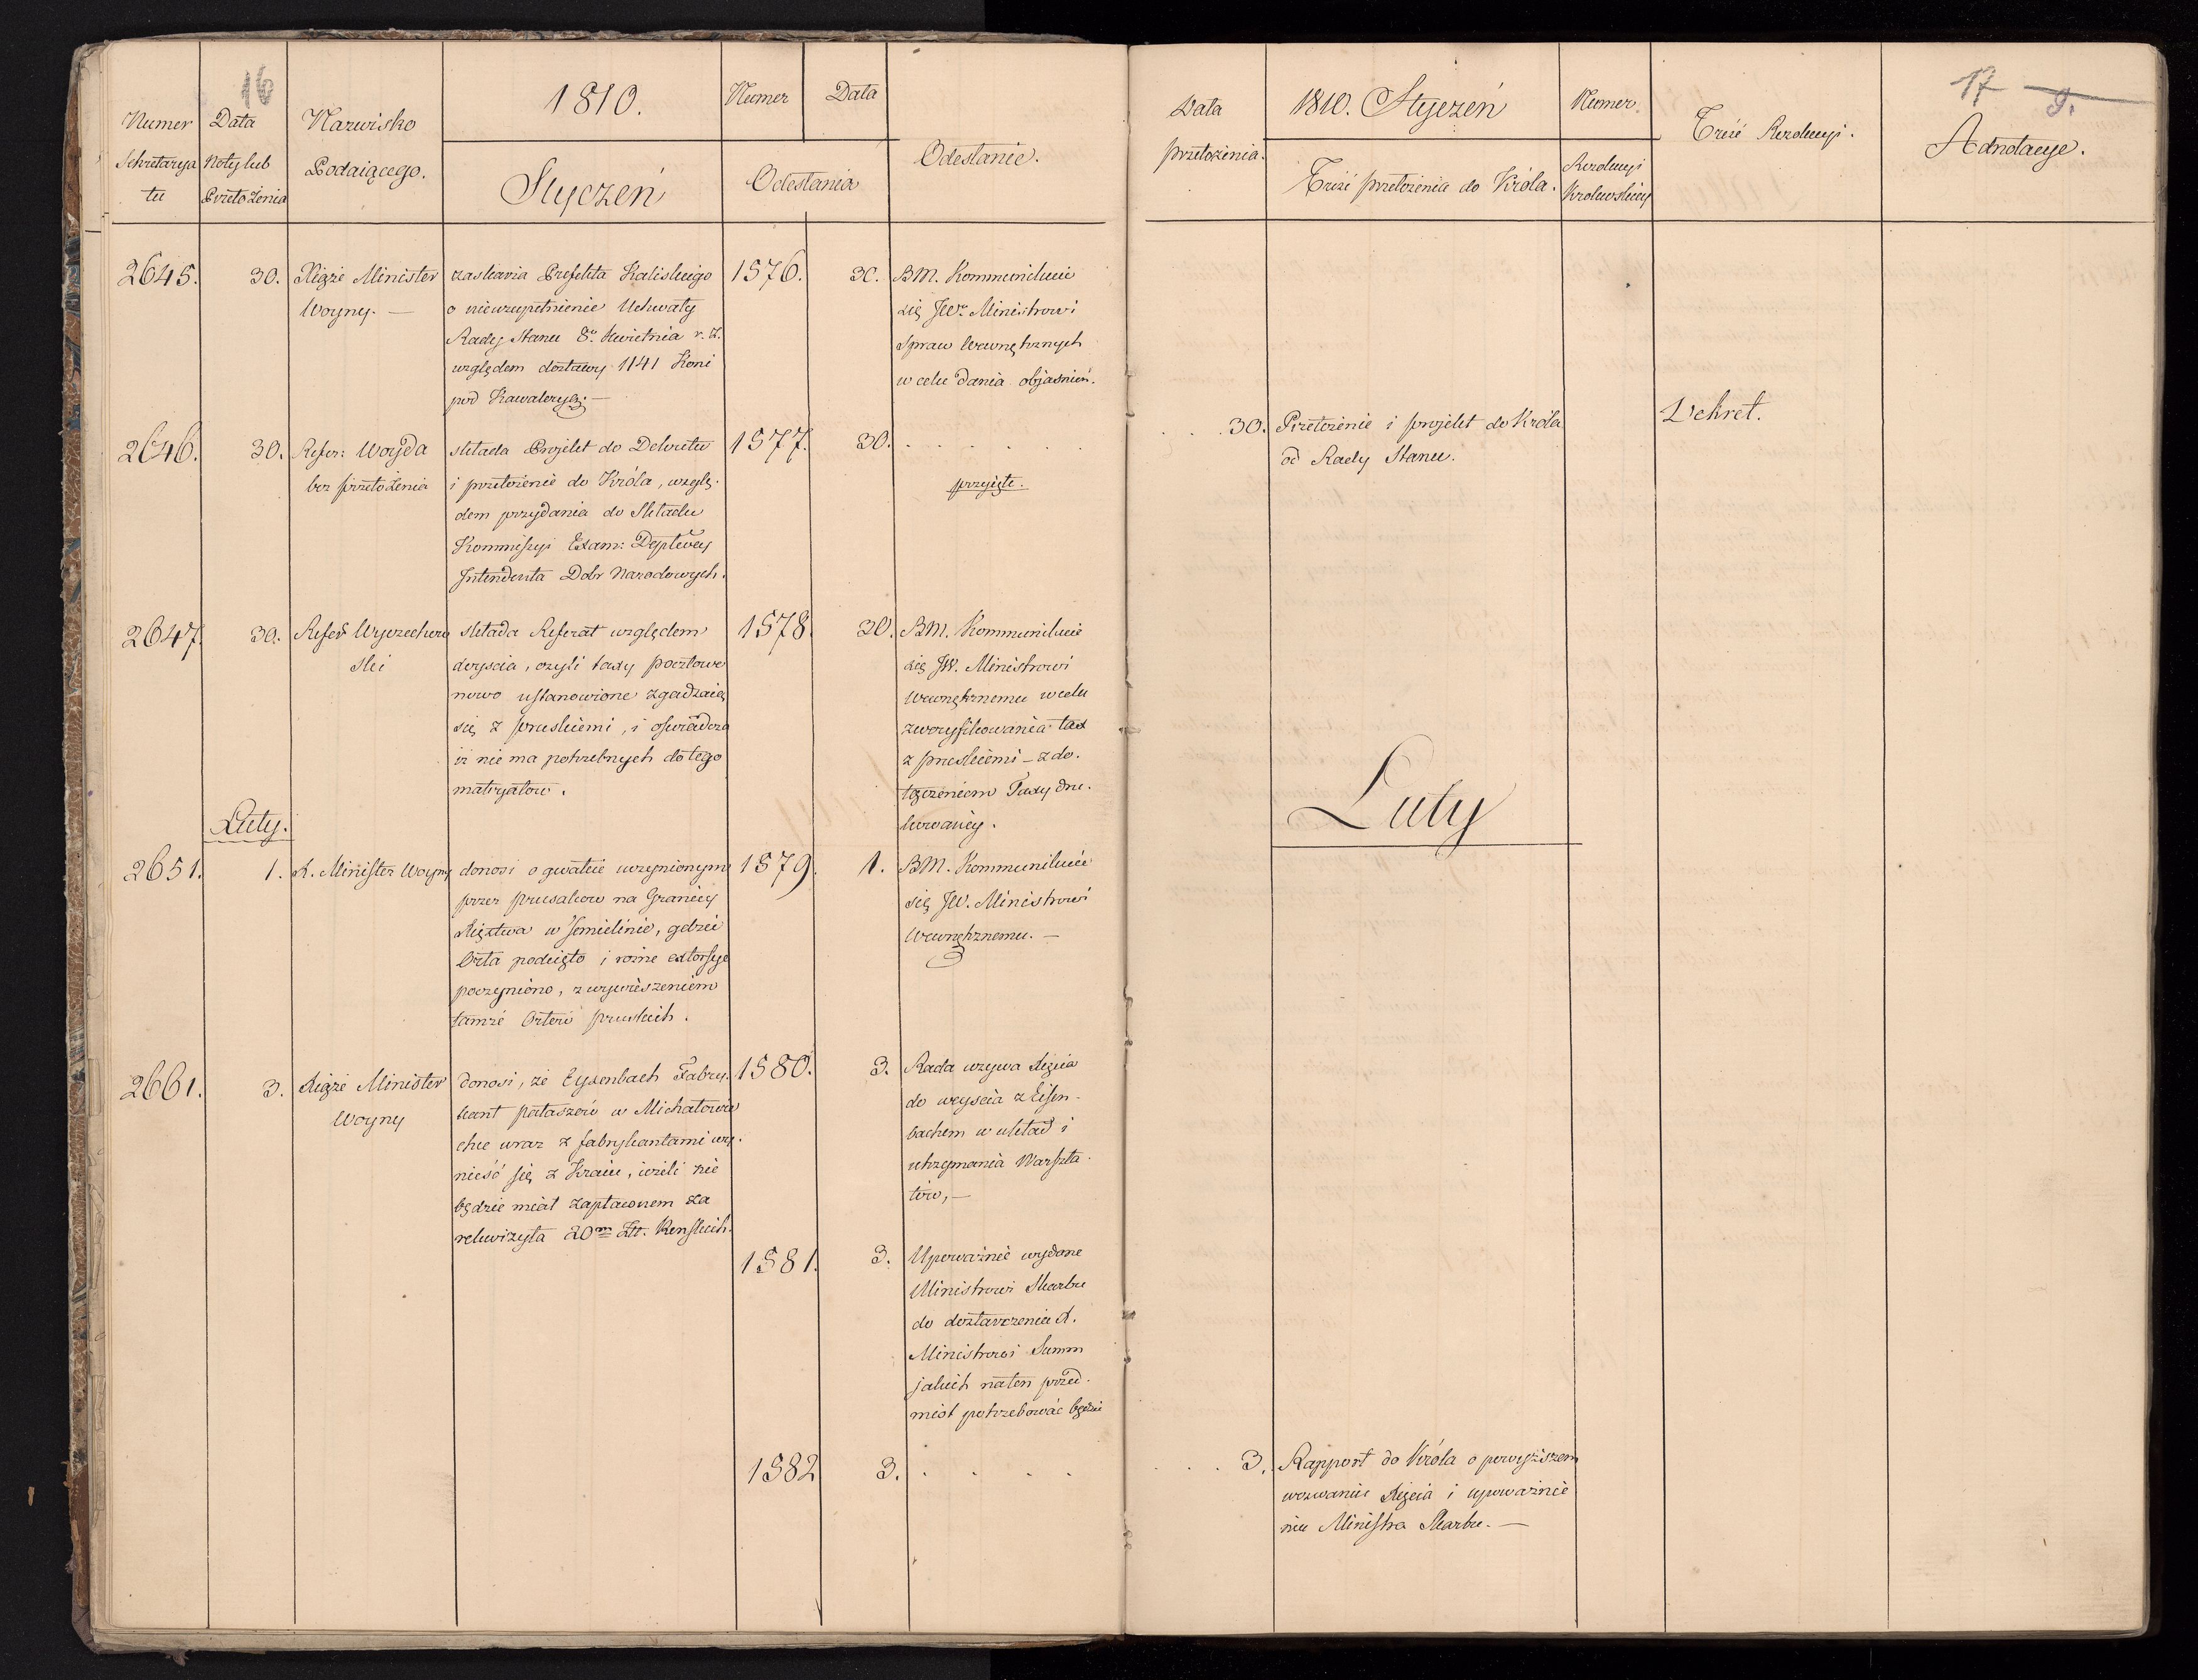 16
Numer Sekretarya tu
Data Noty lub Przełożenia
Nazwisko Podaiącego.
1810.
Styczeń
Numer Data
Odesłania
Odesłanie.
2645. 30. Xiąże Minister Woyny. —
zaskarża Prefekta Kaliskiego
o nieuzupełnienie Uchwały
Rady Stanu 8º Kwietnia r. z.
względem dostawy 1141 Koni
pod Kawaleryą. —
1576. 30.
BM. Kommunikuie
się JW. Ministrowi
Spraw Wewnętrznych
w celu dania objaśnień.
2646. 30. Refer: Woyda
bez przełożenia
składa Projekt do Dekretu
i przełożenie do Króla, wzglę-
dem przydania do Składu
Kommissyi Exam: Deptwey
Intendenta Dobr Narodowych.
1577. 30. . . . . .
przyięte.
2647. 30. Refer Wyczechow
ski
składa Referat względem
doyscia, czyli taxy pocztowe
nowo ustanowione zgadzaią
się z pruskiemi, i oświadcza
iż nie ma potrzebnych do tego
materyałow.
1578. 30.
BM. Kommunikuie
się JW. Ministrowi
Wewnętrznemu w celu
zweryfikowania tax
z pruskiemi – z do-
łączeniem Taxy dru-
kowaney.
Luty.
2651. 1. X. Minister Woyny
donosi o gwałcie uczynionym
przez prusakow na Granicy
Xięztwa w Semielinie, gdzie
Orła podcięto i rożne extorsye
poczyniono, z wywieszeniem
tamże Orłów pruskich.
1579. 1.
BM. Kommunikuie
się JW. Ministrowi
Wewnętrznemu. —
2661. 3. Xiąże Minister
Woyny
donosi, że Eysenbach Fabry-
kant pałaszów w Michałowie
chce wraz z fabrykantami wy-
nieść się z Kraiu, ieżeli nie
będzie miał zapłaconem za
rekwizyta 20m Złt. Renskich.
1580. 3.
Rada wzywa Xięcia
do weyscia z Eisen-
bachem w układ i
utrzymania Warszta-
tów, —
1581. 3.
Upoważnie wydane
Ministrowi Skarbu
do dostarczenia X.
Ministrowi Summ
jakich na ten przed-
miot potrzebować będzie
1582 3. . . . .
17
9.
Data przełożenia.
1810. Styczeń
Treść przełożenia do Króla.
Numer Rezolucyi Krolewskiey
Treść Rezolucyi.
Adnotacye.
. . 30. Przełożenie i projekt do Króla
od Rady Stanu.
Dekret.
Luty
. . . 3. Rapport do Króla o powyższem
wezwaniu Xięcia i upoważnie
niu Ministra Skarbu. —